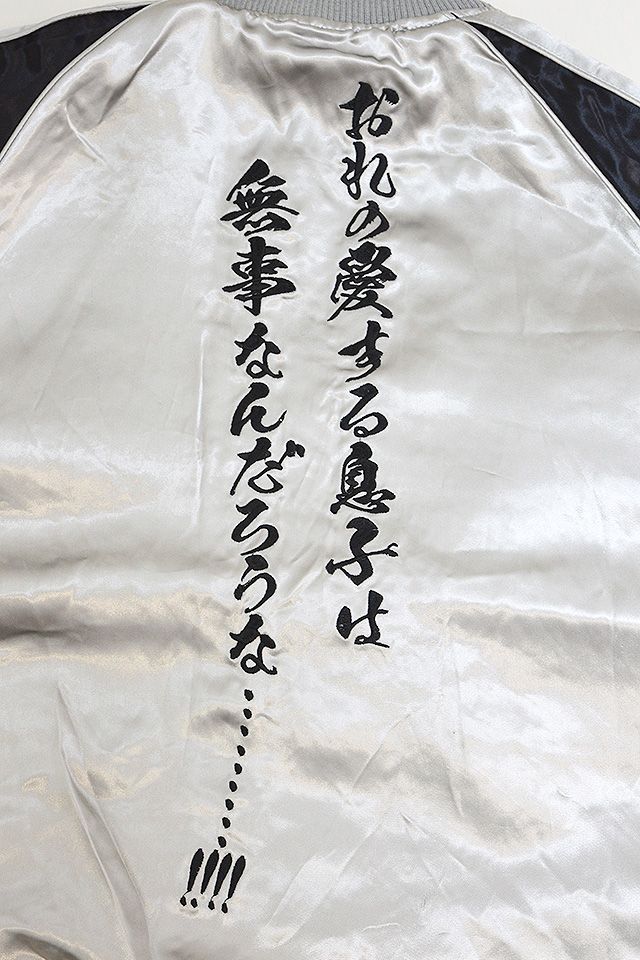 おれの愛する息子は
無事なんだろうな………!!!!